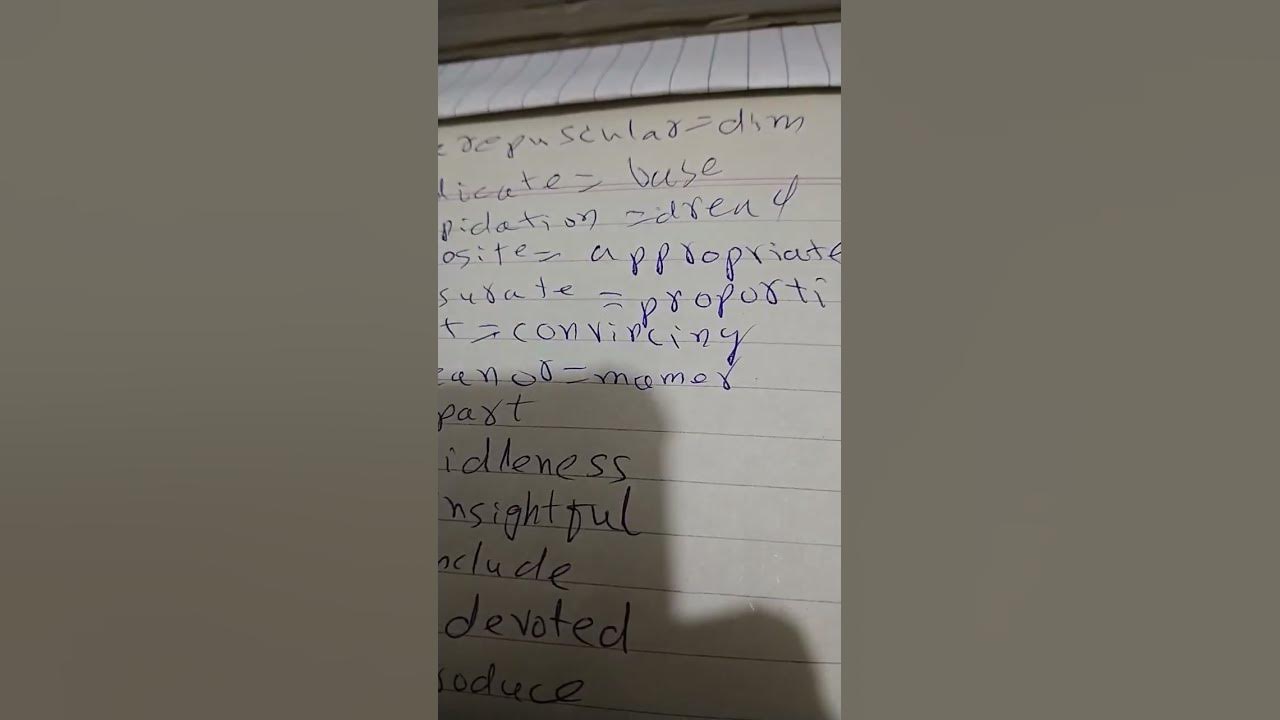 crepuscular=dim
dicate= base
pidation =dread
osite= appropriate
surate =proporti
t=convincing
eanor=manner
part
idleness
nsightful
nclude
devoted
roduce